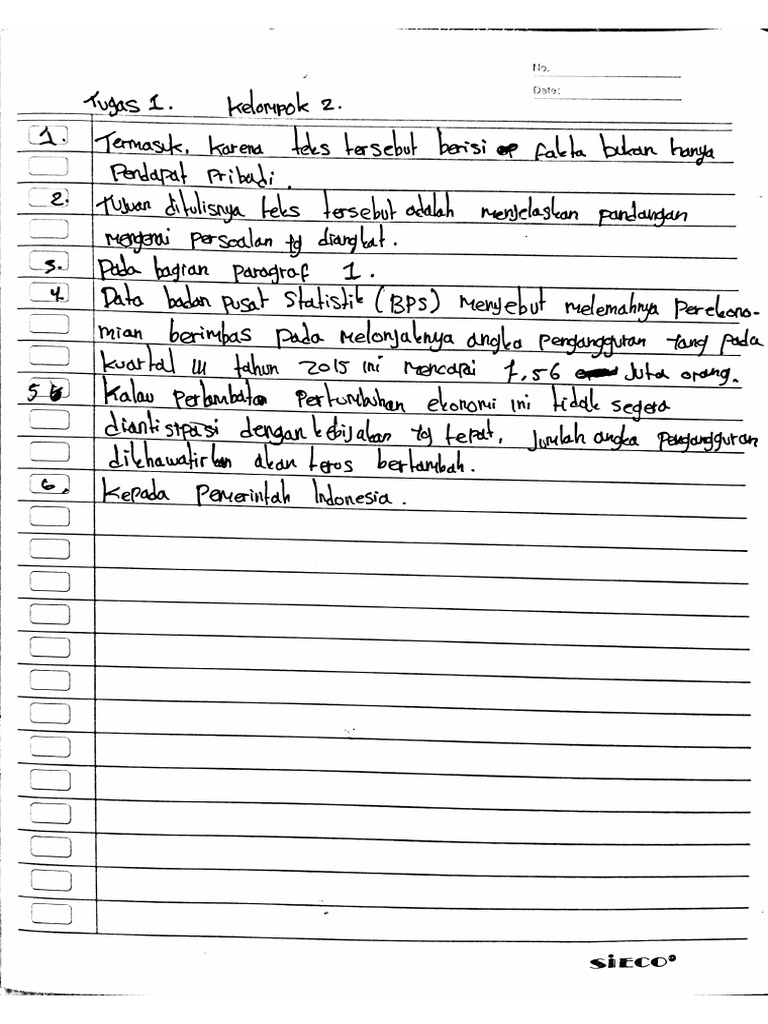 No.
Date:
Tugas 1. Kelompok 2.
1. Termasuk, karena teks tersebut berisi fakta bukan hanya
Pendapat Pribadi.
2. Tujuan ditulisnya teks tersebut adalah menjelaskan pandangan
mengenai persoalan yg diangkat.
3. Pada bagian paragraf 1.
4. Data badan pusat Statistik (BPS) menyebut melemahnya Perekono-
mian berimbas pada melonjaknya angka pengangguran yang pada
kuartal III tahun 2015 ini mencapai 7,56 Juta orang.
5 Kalau Perlambatan Pertumbuhan ekonomi ini tidak segera
diantisipasi dengan kebijakan yg tepat, Jumlah angka pengangguran
dikhawatirkan akan terus bertambah.
6. Kepada Pemerintah Indonesia.
SiECO